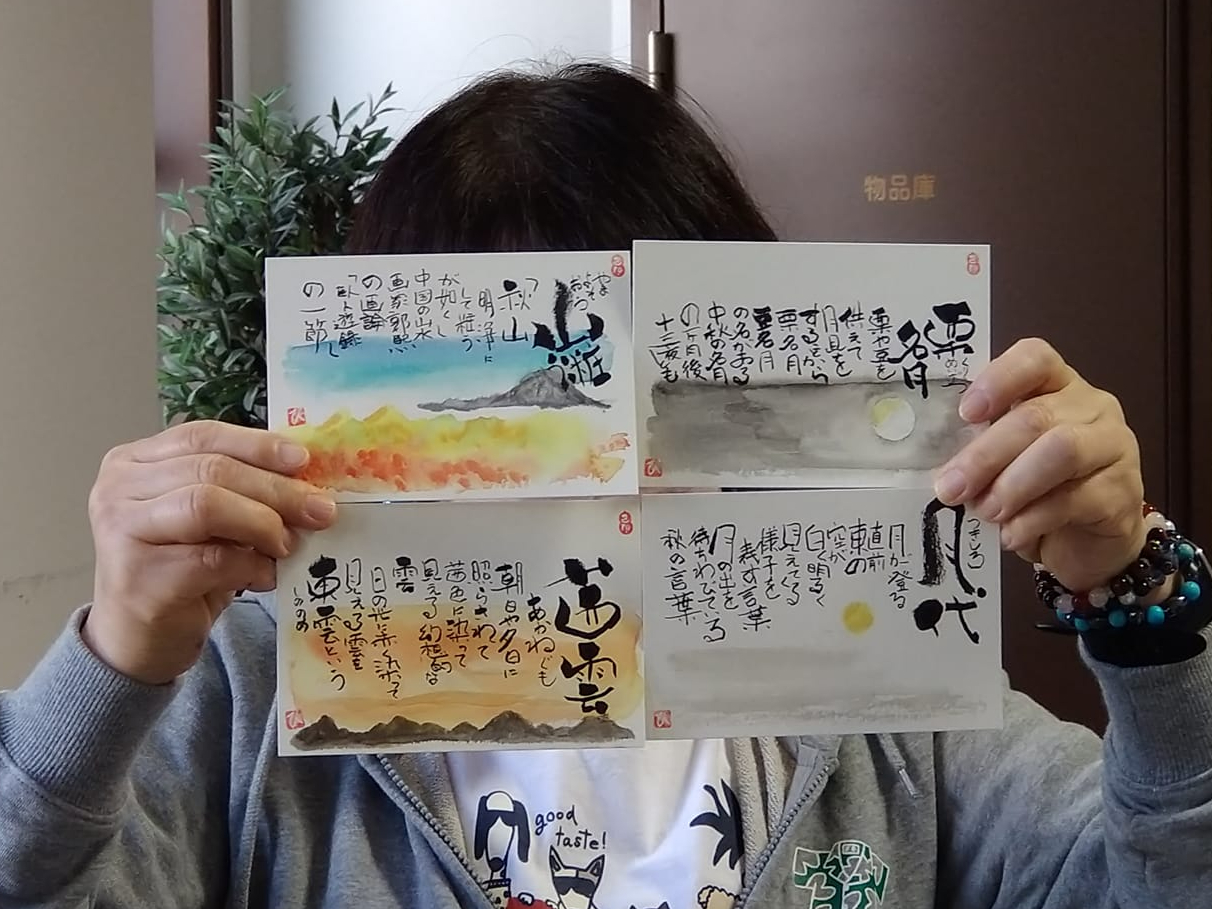 物品庫
山粧う
やまよそおう
「秋山
明淨に
して粧う
が如くし
中国の山水
画家郭熙
の画論
「臥遊録」
の一節
栗名月
栗や豆を
供えて
月見を
することから
栗名月
豆名月
の名がある
中秋の名月
の一ヶ月後
十三夜も
茜雲
あかねぐも
朝日や夕日に
照らされて
茜色に染って
見える幻想的な
雲
日の光に赤く染って
見える雲を
東雲という
しののめ
月代
つきしろ
月が登る
直前
東の
空が
白く明るく
見えてくる
様子を
表す言葉
月の出を
待ちわびている
秋の言葉
good
taste!